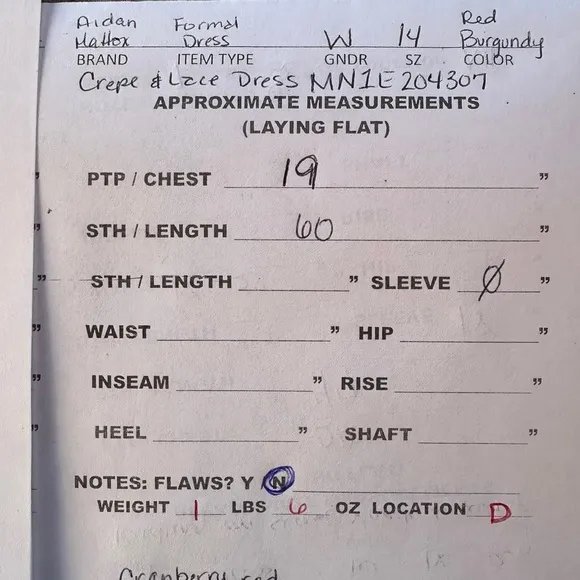 Aidan Formal Red
Mattox Dress W 14 Burgundy
BRAND ITEM TYPE GNDR SZ COLOR
Crepe & Lace Dress MN1E204307
APPROXIMATE MEASUREMENTS
(LAYING FLAT)
PTP / CHEST 19 ”
STH / LENGTH 60 ”
STH / LENGTH ” SLEEVE Ø ”
WAIST ” HIP ”
INSEAM ” RISE ”
HEEL ” SHAFT ”
NOTES: FLAWS? Y / N
WEIGHT 1 LBS 6 OZ LOCATION D
Cranberry red